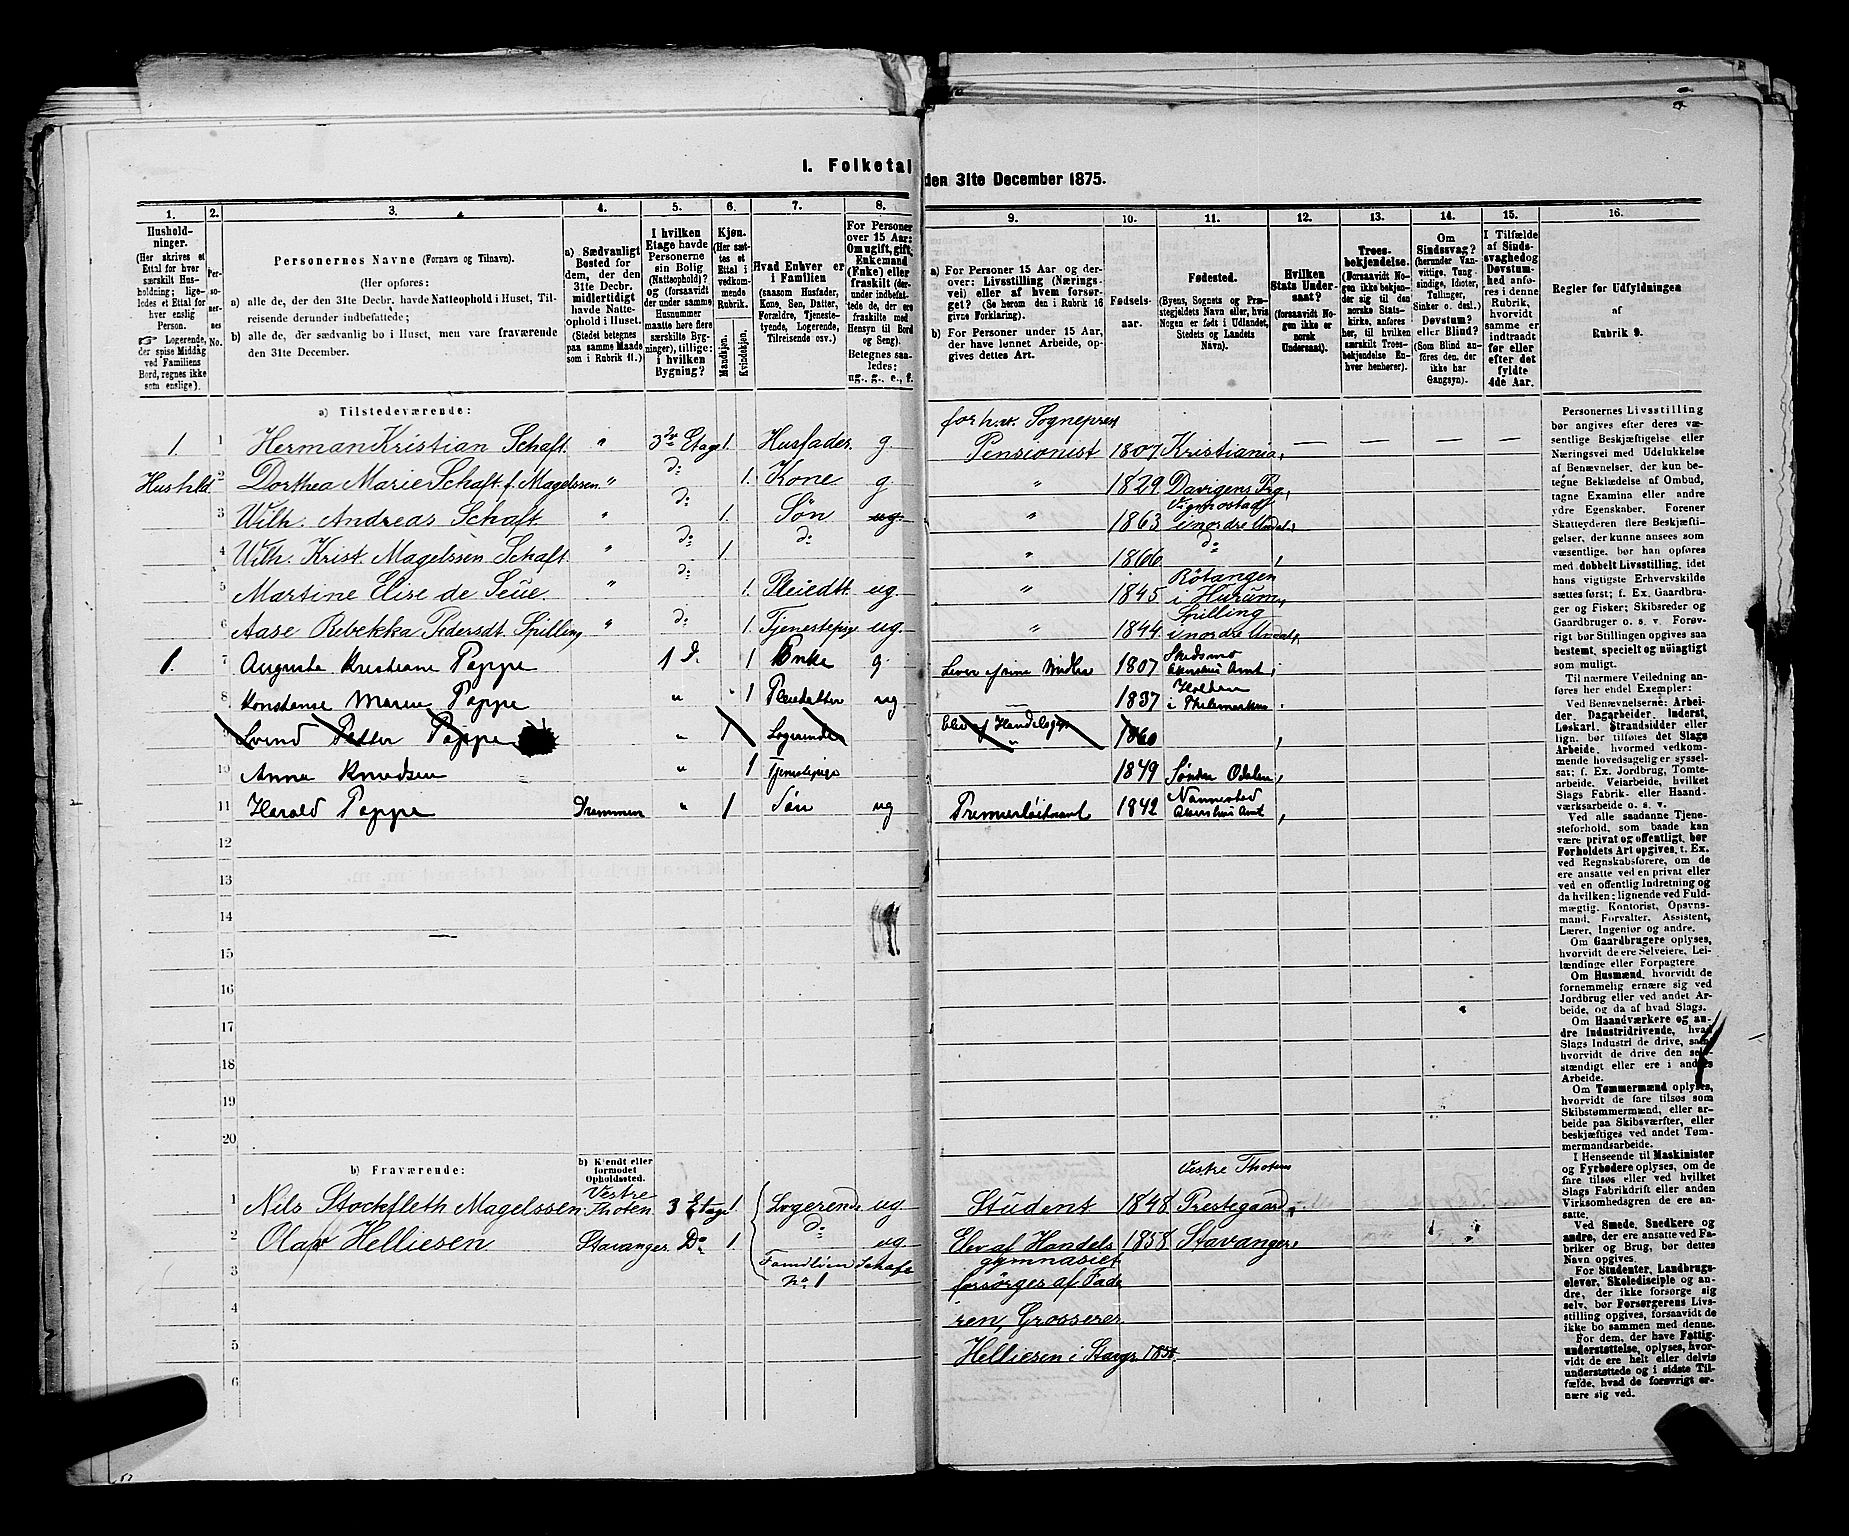 I. Folketal den 31te December 1875.
1. 2. 3. 4. 5. 6. 7. 8. 9. 10. 11. 12. 13. 14. 15. 16.
Hushold-
ninger.
(Her skrives et
Ettal for hver
særskilt Hus-
holdning; lige-
ledes et Ettal for
hver enslig
Person.
☞ Logerende,
der spise Middag
ved Familiens
Bord, regnes ikke
som enslige).
Per-
so-
ner-
nes
No.
Personernes Navne (Fornavn og Tilnavn).
(Her opføres:
a) alle de, der den 31te Decbr. havde Natteophold i Huset, Til-
reisende derunder indbefattede;
b) alle de, der sædvanlig bo i Huset, men vare fraværende
den 31te December.
a) Sædvanligt
Bosted for
dem, der den
31te Decbr.
midlertidigt
havde Natte-
ophold i Huset.
(Stedet betegnes
paa samme Maade
som i Rubrik 11.)
I hvilken
Etage havde
Personerne
sin Bolig
(Natteophold)?
og (forsaavidt
der under samme
Husnummer
maatte høre flere
særskilte Byg-
ninger), tillige:
i hvilken
Bygning?
Kjøn.
(Her sæt-
tes et
Ettal i
vedkom-
mende
Rubrik.
Mandkjøn.
Kvindekjøn.
Hvad Enhver er
i Familien
(saasom Husfader,
Kone, Søn, Datter,
Forældre, Tjeneste-
tyende, Logerende,
Tilreisende osv.)
For Personer
over 15 Aar:
Om ugift, gift,
Enkemand
(Enke) eller
fraskilt (der-
under indbefat-
tede de, der ere
fraskilte med
Hensyn til Bord
og Seng).
Betegnes saa-
ledes:
ug., g., e., f.
a) For Personer 15 Aar og der-
over: Livsstilling (Nærings-
vei) eller af hvem forsør-
get? (Se herom den i Rubrik 16
givne Forklaring).
b) For Personer under 15 Aar,
der have lønnet Arbeide, op-
gives dettes Art.
Fødsels-
aar.
Fødested.
(Byens, Sognets og Præ-
stegjeldets Navn eller, hvis
Nogen er født i Udlandet,
Stedets og Landets
Navn).
Hvilken
Stats Under-
saat?
(forsaavidt No-
gen ikke er
norsk
Undersaat).
Troes-
bekjendelse.
(Forsaavidt No-
gen ikke bekjen-
der sig til den
norske Stats-
kirke, anføres
her, til hvilken
særskilt Troes-
bekjendelse En-
hver henhører).
Om
Sindssvag?
(herunder Van-
vittige, Tung-
sindige, Idioter,
Tullinger,
Sinker o. desl.)
Døvstum?
eller Blind?
(Som Blind an-
føres den, der
ikke har
Gangsyn).
I Tilfælde
af Sinds-
svaghed og
Døvstum-
hed anfø-
res i denne
Rubrik,
hvorvidt
samme er
indtraadt
før eller
efter det
fyldte
4de Aar.
Regler for Udfyldningen
af
Rubrik 9.
a) Tilstedeværende:
1. Hushld. 1 Herman Kristian Schaft " 3 Etage 1. Husfader g forhv. Sognepræst Pensionist 1807 Kristiania, — — — —
2 Dorthea Marie Schaft f. Magelssen " do 1. Kone g " 1829 Davigens Prg.,
3 Wilh. Andreas Schaft " do 1. Søn ug. " 1863 i nordre Undal,
4 Wilh. Krist. Magelssen Schaft " do 1. do " 1866 do ,
5 Martine Elise de Seue " do 1. Pleiedtt. ug. " 1845 Rötangen i Hurum,
6 Aase Rebekka Pedersdt. Spilling " do 1. Tjenestepige ug. " 1844 Spilling i nordre Undal,
1. 7 Augusta Kristiane Poppe 1 D. 1 Enke g. Lever af sine Midler 1807 Skedsmo Akershus Amt ,
8 Konstanse Marie Poppe " 1 Pleiedatter ug — 1837 Holden i Thelemarken .
Svend Petter Poppe " 1 Logerende Elev af Handelsgym " 1860 ,
10 Anna Knudsen " 1 Tjenestepige 1849 Søndre Odalen ,
11 Harald Poppe Drammen " 1 Søn ug Premierløitnant 1842 Nannestad Akershus Amt ,
12
13
14
15
16
17
18
19
20
b) Fraværende:
b) Kjendt eller
formodet
Opholdssted.
1 Nils Stockfleth Magelssen Vestre Thoten 3 Etage 1. Logerende ug Student 1848 Vestre Thotens Prestegaard,
2 Olaf Helliesen Stavanger. Do 1. do ug Elev af Handels 1858 Stavanger,
gymnasiet
3 Familien Schaft no 1 forsörges af Fade
4 ren, Grosserer
5 Helliesen i Stavgr. 1858.
6
Personernes Livsstilling
bør angives efter deres væ-
sentlige Beskjæftigelse eller
Næringsvei med Udelukkelse
af Benævnelser, der kun be-
tegne Beklædelse af Ombud,
tagne Examina eller andre
ydre Egenskaber. Forener
Skatteyderen flere Beskjæfti-
gelser, der kunne ansees som
væsentlige, bør han opføres
med dobbelt Livsstilling, idet
hans vigtigste Erhvervskilde
sættes først; f. Ex. Gaardbru-
ger og Fisker; Skibsreder og
Gaardbruger o. s. v. Forøv-
rigt bør Stillingen opgives saa
bestemt, specielt og nøiagtigt
som muligt.
Til nærmere Veiledning an-
føres her endel Exempler:
Ved Benævnelserne: Arbei-
der, Dagarbeider, Inderst,
Løskarl, Strandsidder eller
lign. bør tilføies det Slags
Arbeide, hvormed vedkom-
mende hovedsagelig er syssel-
sat; f. Ex. Jordbrug, Tomte-
arbeide, Veiarbeide, hvilket
Slags Fabrik- eller Haand-
værksarbeide o. s. v.
Ved alle saadanne Tjene-
steforhold, som baade kan
være privat og offentligt, bør
Forholdets Art opgives, t. Ex.
ved Regnskabsførere, om de
ere ansatte ved en privat eller
ved en offentlig Indretning og
da hvilken; lignende ved Fuld-
mægtig, Kontorist, Opsyns-
mand, Forvalter, Assistent,
Lærer, Ingeniør og andre.
Om Gaardbrugere oplyses,
hvorvidt de ere Selveiere, Lei-
lændinge eller Forpagtere
Om Husmænd, hvorvidt de
fornemmelig ernære sig ved
Jordbrug eller ved andet Ar-
beide, og da af hvad Slags.
Om Haandværkere og an-
dre Industridrivende, hvad
Slags Industri de drive, samt
hvorvidt de drive den selv-
stændigt eller ere i andres
Arbeide.
Om Tømmermænd oplyses,
hvorvidt de fare tilsøs som
Skibstømmermænd, eller ar-
beide paa Skibsværfter, eller
beskjæftiges ved andet Tøm-
mermandsarbeide.
I Henseende til Maskinister
og Fyrbødere oplyses, om de
fare tilsøs eller ved hvilket
Slags Fabrikdrift eller anden
Virksomhedsgren de ere an-
satte.
Ved Smede, Snedkere og
andre, der ere ansatte ved Fa-
briker og Brug, bør dettes
Navn opgives.
For Studenter, Landbrugs-
elever, Skoledisciple og an-
dre, der ikke forsørge sig
selv, bør Forsørgerens Livs-
stilling opgives, forsaavidt de
ikke bo sammen med denne.
For dem, der have Fattig-
understøttelse, oplyses, hvor-
vidt de ere helt eller delvis
understøttede og i sidste Til-
fælde, hvad de forøvrigt er-
nære sig ved.